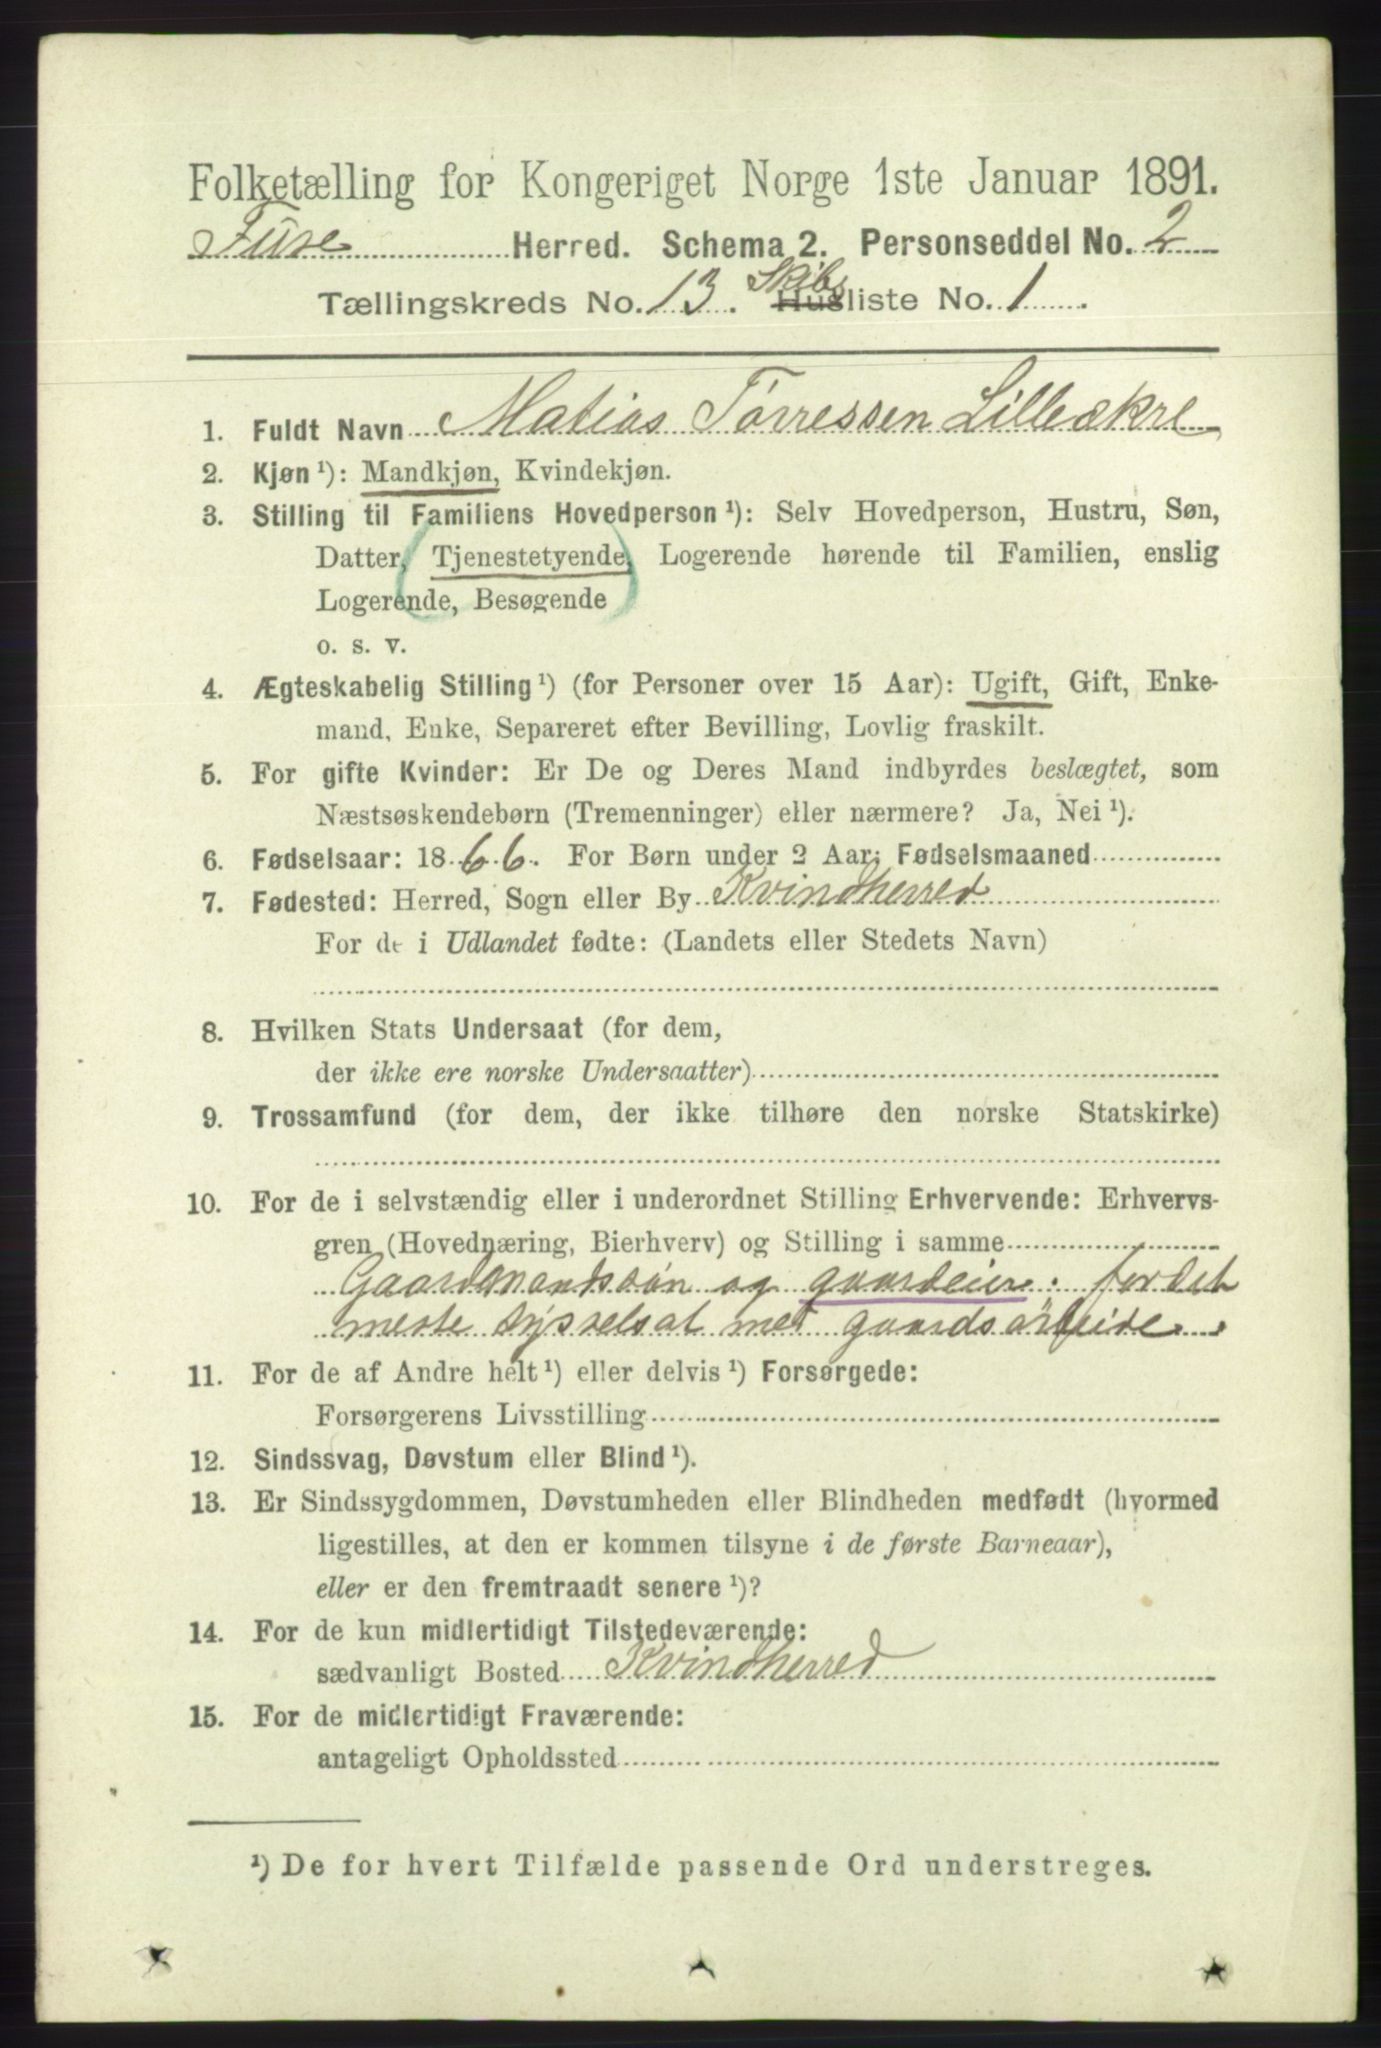 Folketælling for Kongeriget Norge 1ste Januar 1891.
Fuse Herred. Schema 2. Personseddel No. 2
Tællingskreds No. 13. Skibs Husliste No. 1
1. Fuldt Navn Matias Tørressen Lilleækre
2. Kjøn ¹): Mandkjøn, Kvindekjøn.
3. Stilling til Familiens Hovedperson ¹): Selv Hovedperson, Hustru, Søn,
Datter, Tjenestetyende, Logerende hørende til Familien, enslig
Logerende, Besøgende
o. s. v.
4. Ægteskabelig Stilling ¹) (for Personer over 15 Aar): Ugift, Gift, Enke-
mand, Enke, Separeret efter Bevilling, Lovlig fraskilt.
5. For gifte Kvinder: Er De og Deres Mand indbyrdes beslægtet, som
Næstsøskendebørn (Tremenninger) eller nærmere? Ja, Nei ¹).
6. Fødselsaar: 1866. For Børn under 2 Aar: Fødselsmaaned
7. Fødested: Herred, Sogn eller By Kvindherred
For de i Udlandet fødte: (Landets eller Stedets Navn)
8. Hvilken Stats Undersaat (for dem,
der ikke ere norske Undersaatter)
9. Trossamfund (for dem, der ikke tilhøre den norske Statskirke)
10. For de i selvstændig eller i underordnet Stilling Erhvervende: Erhvervs-
gren (Hovednæring, Bierhverv) og Stilling i samme
Gaardmandssøn og gaardeier. for det
meste sysselsat med gaardsarbeide.
11. For de af Andre helt ¹) eller delvis ¹) Forsørgede:
Forsørgerens Livsstilling
12. Sindssvag, Døvstum eller Blind ¹).
13. Er Sindssygdommen, Døvstumheden eller Blindheden medfødt (hvormed
ligestilles, at den er kommen tilsyne i de første Barneaar),
eller er den fremtraadt senere ¹)?
14. For de kun midlertidigt Tilstedeværende:
sædvanligt Bosted Kvindherred
15. For de midlertidigt Fraværende:
antageligt Opholdssted
¹) De for hvert Tilfælde passende Ord understreges.